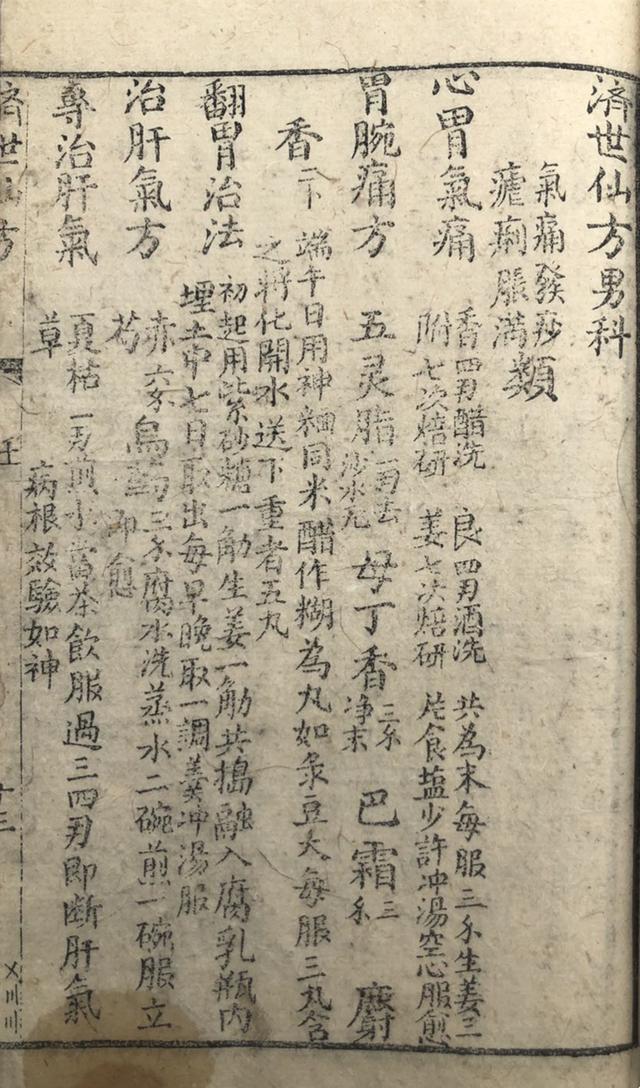 済世仙方男科
氣痛發痧
瘧痢脹満類
心胃氣痛
香四刄醋洗
附七次焙研
良四刄酒洗
姜七次焙研
共為末每服三分生姜三
片食盐少許冲湯空心服愈
胃腕痛方 五灵脂 一刄去沙水飞 母丁香 三分净末 巴霜 三分 麝
香二下 端午日用神麯同米醋作糊為丸如彔豆大每服三丸含
之將化開水送下重者五丸
翻胃治法 初起用紫砂糖一觔生姜一觔共搗融入腐乳瓶内
埋土中七日取出每早晚取一調羹冲湯服
治肝氣方 赤芍 六分 烏葯三分腐水洗蒸水二碗煎一碗服立
即愈
專治肝氣 夏枯草 一刄煎水當茶飲服過三四刄即断肝氣
病根效驗如神
済世仙方
王
十三
〤〢〣